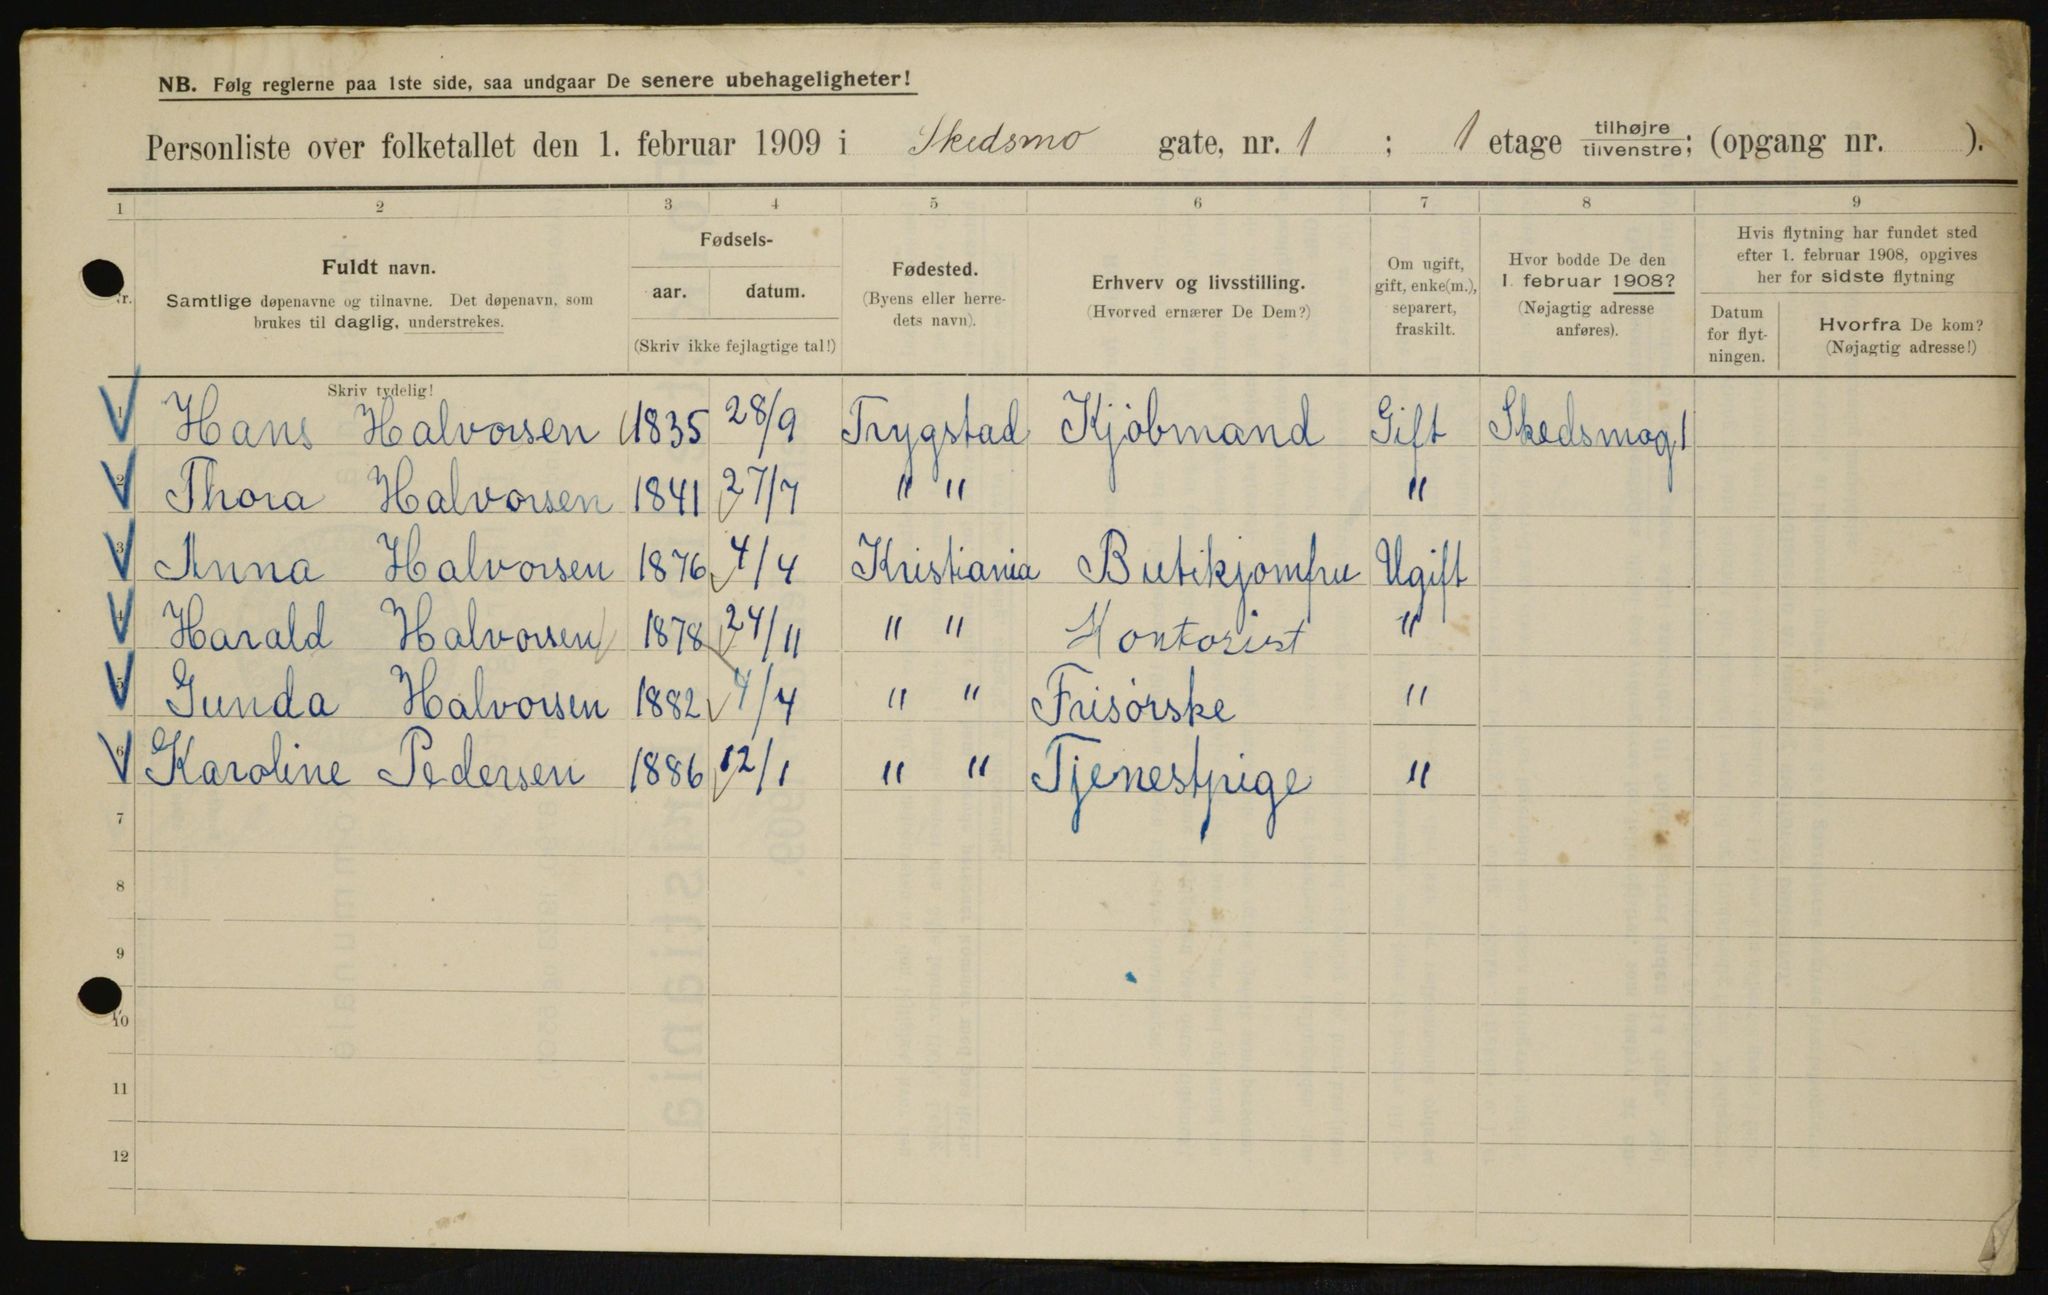 NB. Følg reglerne paa 1ste side, saa undgaar De senere ubehageligheter!
Personliste over folketallet den 1. februar 1909 i Skedsmo gate, nr. 1 ; 1 etage tilhøjre tilvenstre; (opgang nr. ).
1 2 3 4 5 6 7 8 9
Nr.
Fuldt navn.
Samtlige døpenavne og tilnavne. Det døpenavn, som
brukes til daglig, understrekes.
Fødsels-
aar. datum.
(Skriv ikke fejlagtige tal!)
Fødested.
(Byens eller herre-
dets navn).
Erhverv og livsstilling.
(Hvorved ernærer De Dem?)
Om ugift,
gift, enke(m.),
separert,
fraskilt.
Hvor bodde De den
1. februar 1908?
(Nøjagtig adresse
anføres).
Hvis flytning har fundet sted
efter 1. februar 1908, opgives
her for sidste flytning
Datum
for flyt-
ningen.
Hvorfra De kom?
(Nøjagtig adresse!)
Skriv tydelig!
1 Hans Halvorsen 1835 28/9 Trygstad Kjöbmand Gift Skedsmog 1
2 Thora Halvorsen 1841 27/7 " " "
3 Anna Halvorsen 1876 4/4 Kristiania Butikjomfru Ugift
4 Harald Halvorsen 1878 24/11 " " Kontorist "
5 Gunda Halvorsen 1882 4/4 " " Frisörske "
6 Karoline Pedersen 1886 12/1 " " Tjenestpige "
7
8
9
10
11
12